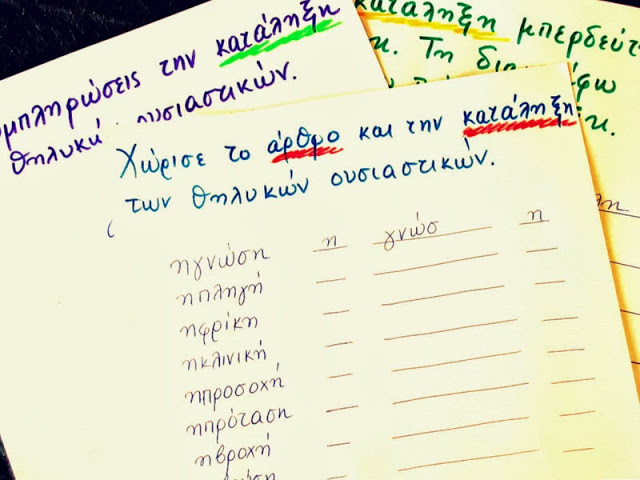 μπληρώσεις την κατάληξη
θηλυκά ουσιαστικών.
κατάληξη μπερδεύτ
κ. Τη
Χώρισε το άρθρο και την κατάληξη
των θηλυκών ουσιαστικών.
ηγνώση η γνώσ η
ηπληγή
ηφρίκη
ηκλινική
ηπροσοχή
ηπρόταση
ηβροχή